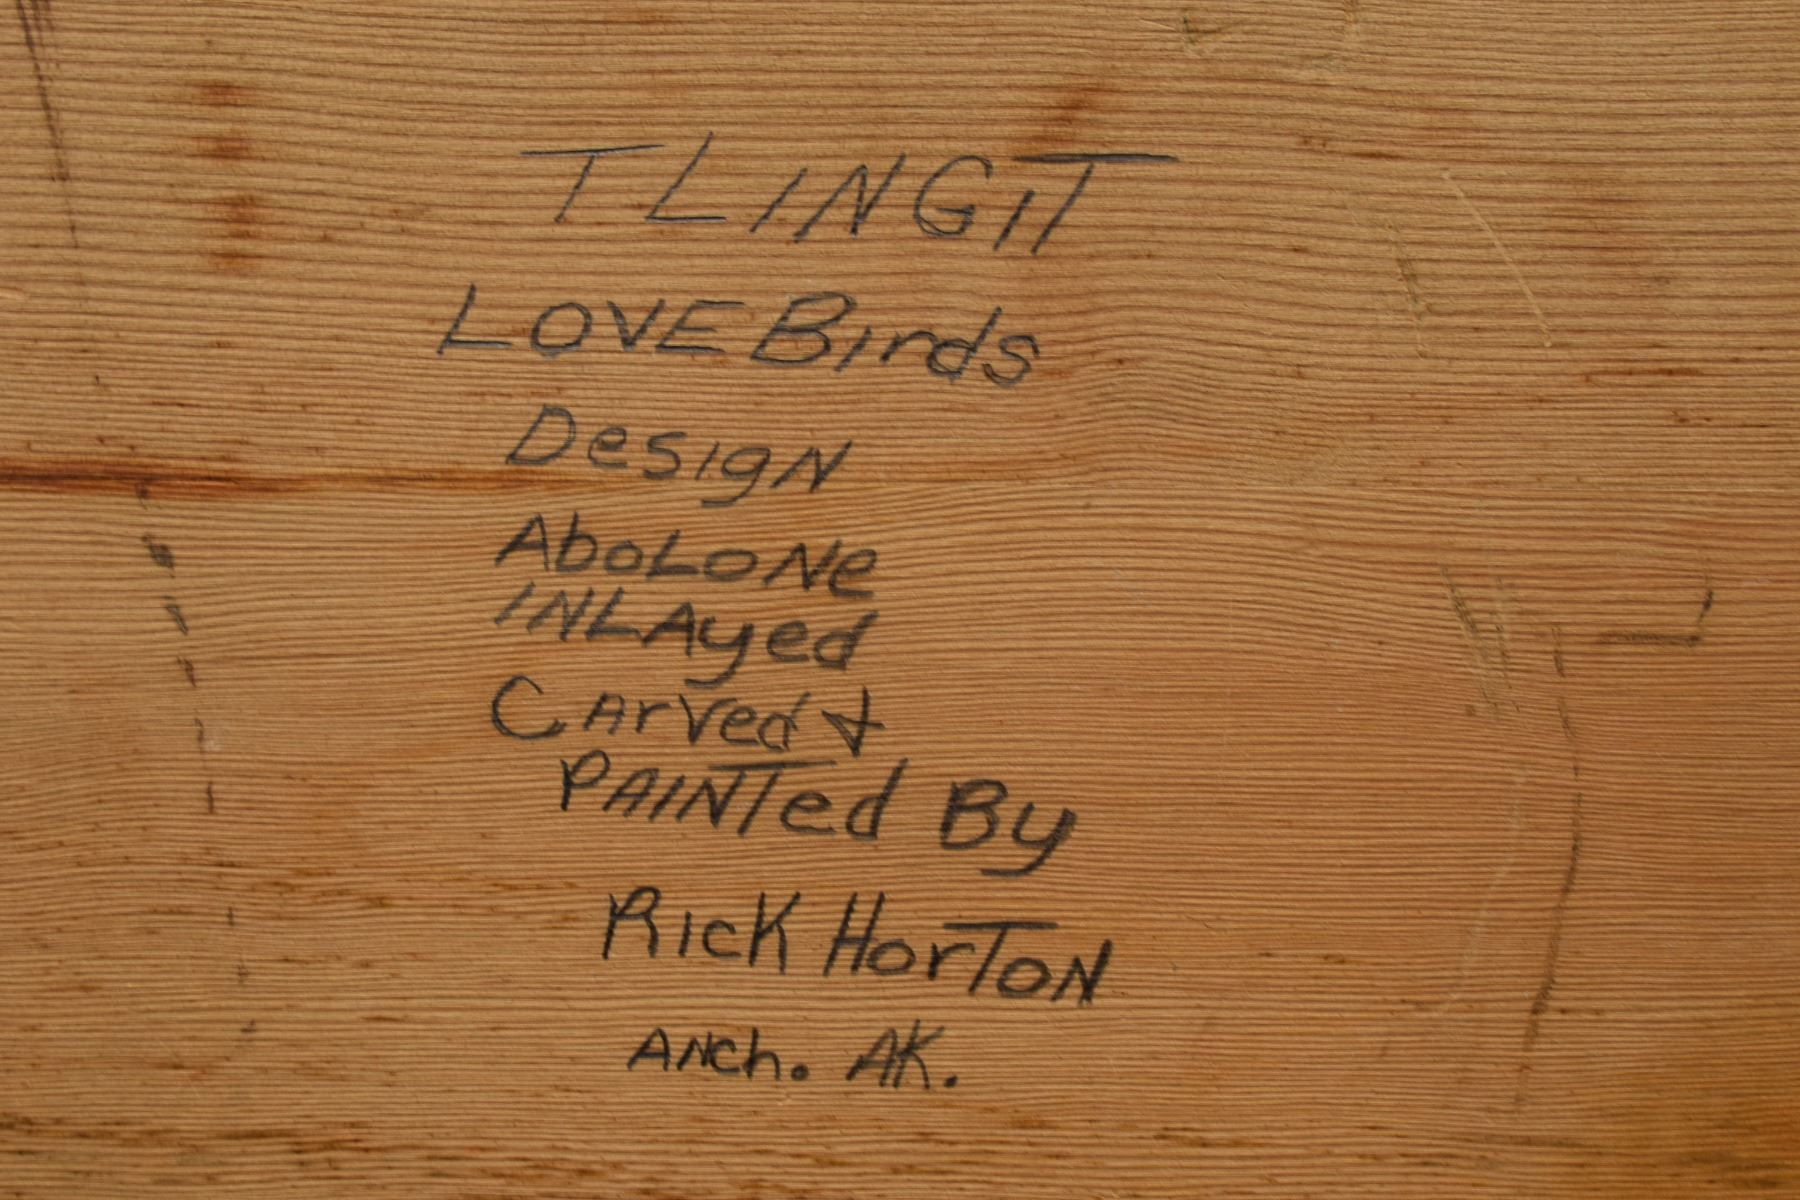 TLINGIT
LOVE Birds
DesigN
AboLoNe
INLAyed
CArVed &
PAINTed By
RicK HorTON
ANch. AK.